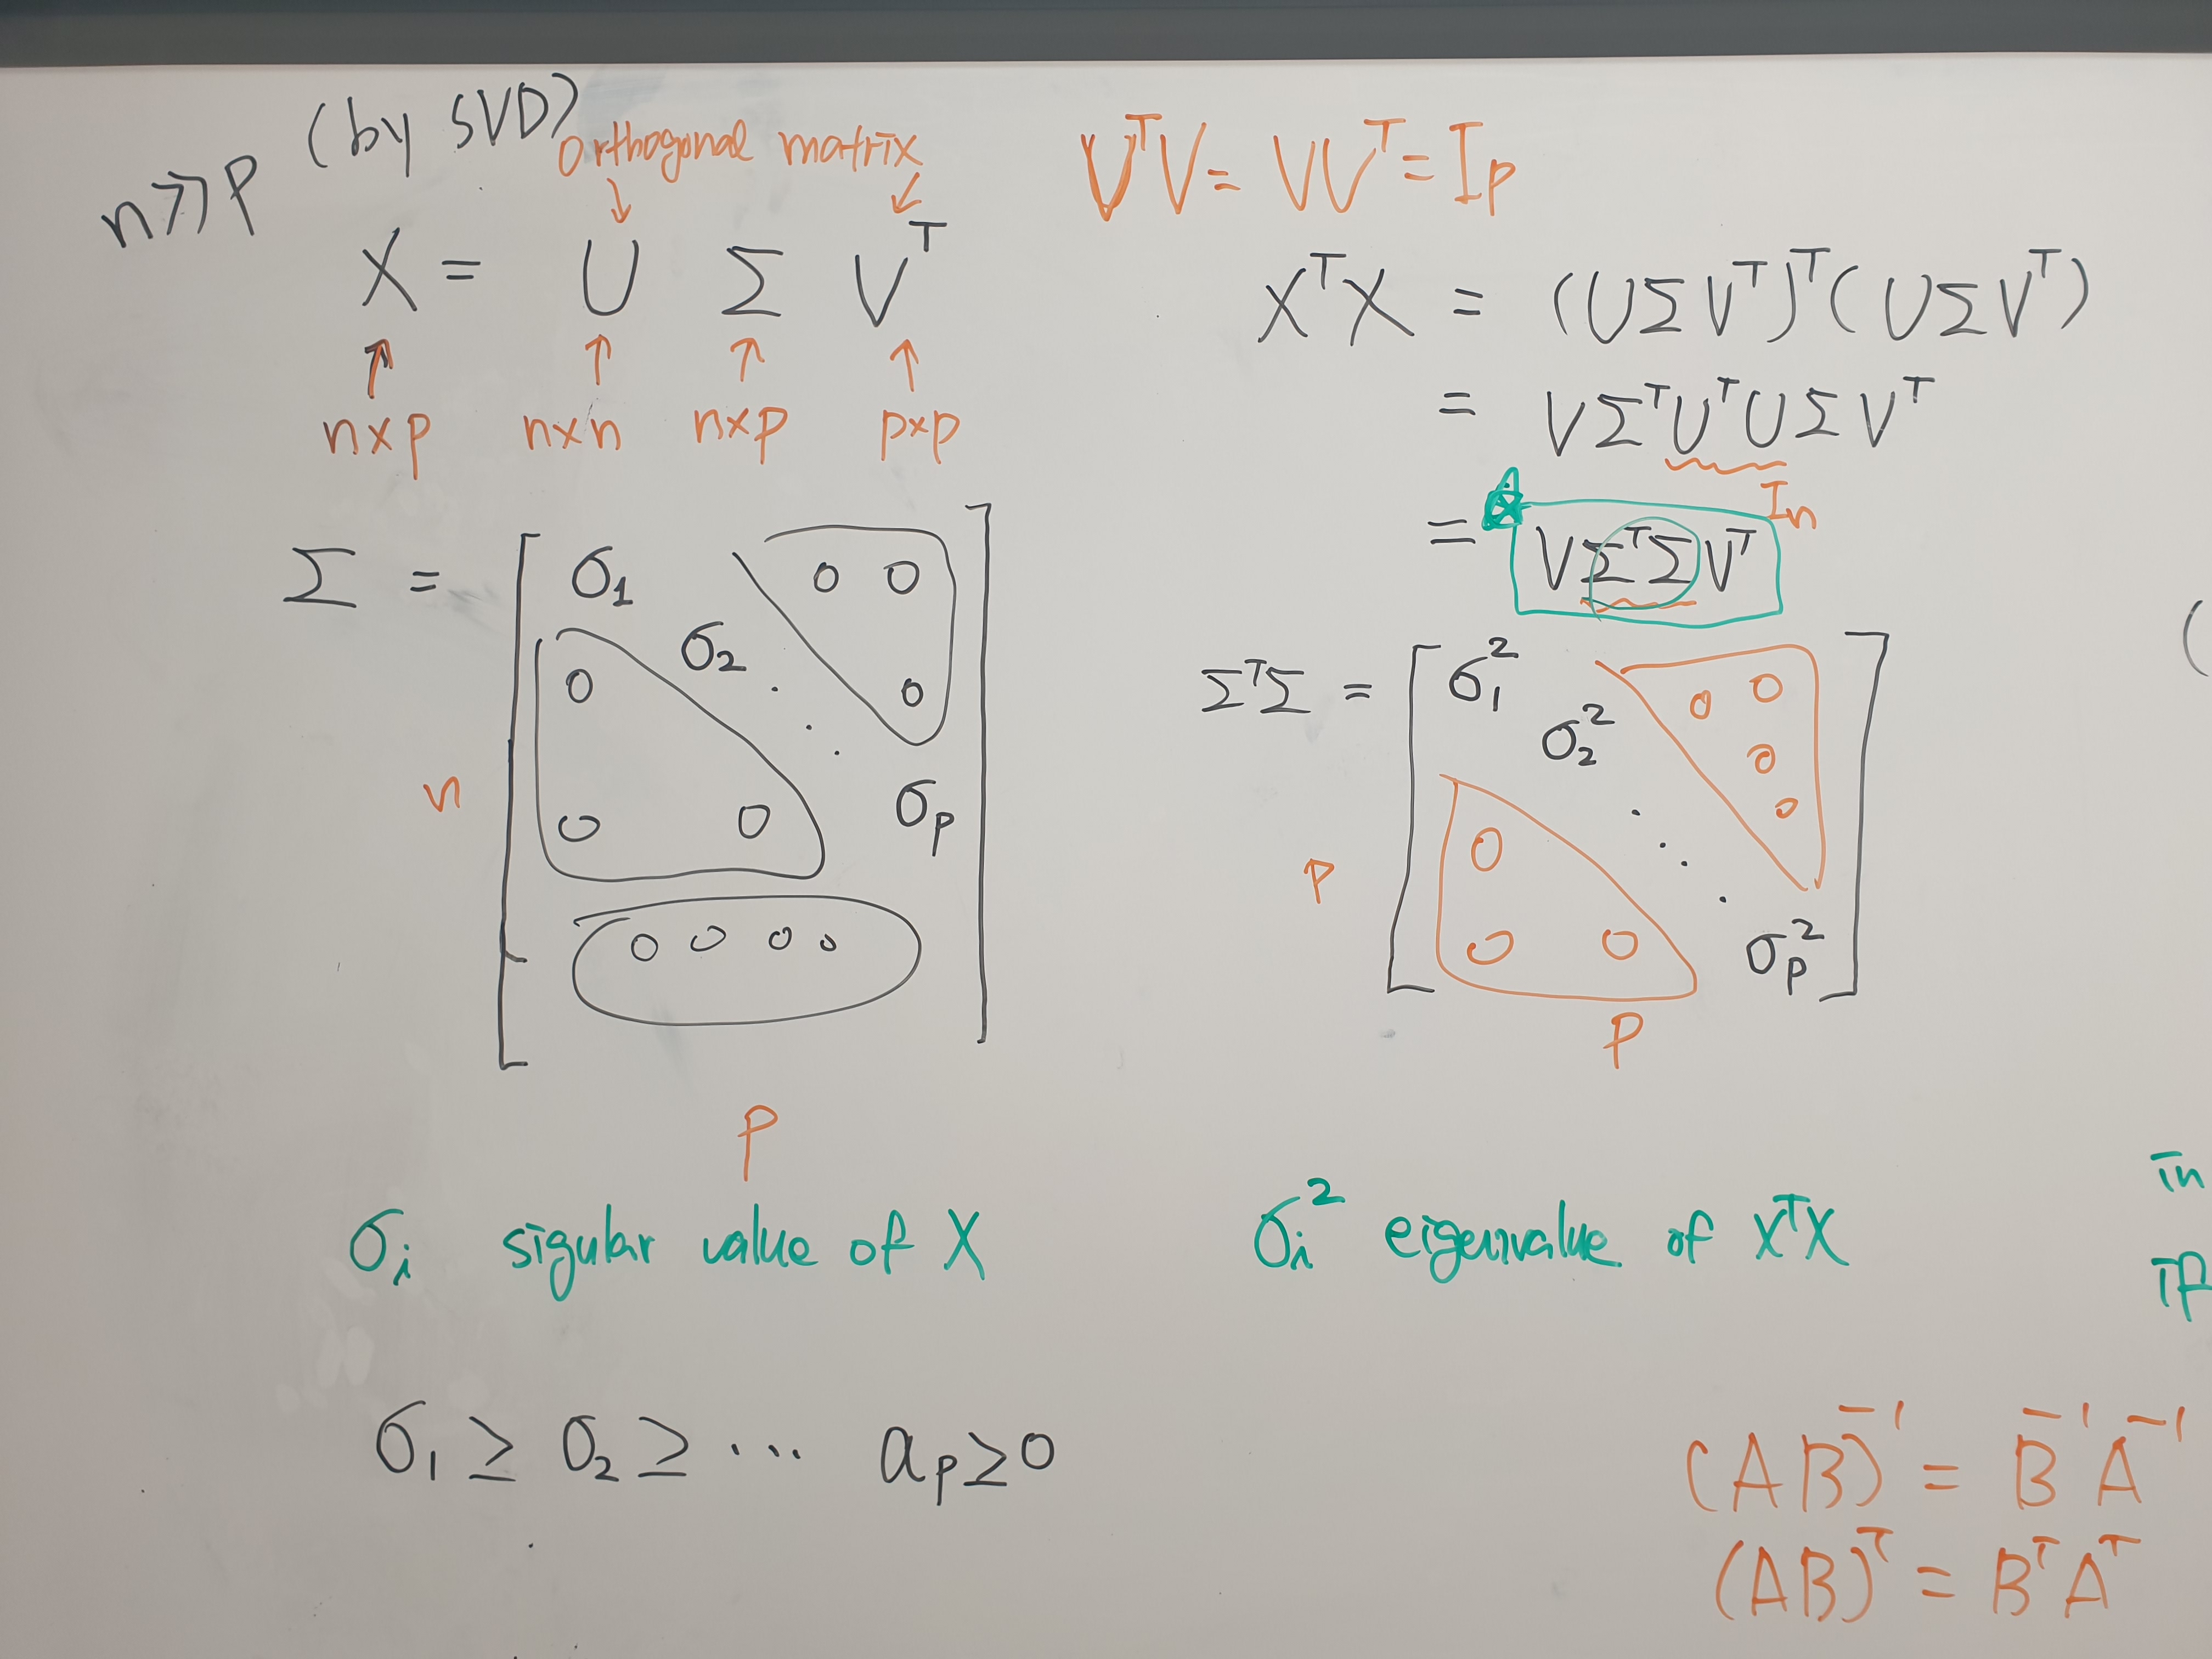 n≫p (by SVD)
Orthogonal matrix
↓ ↙
X = U Σ Vᵀ
↑ ↑ ↑ ↑
n×p n×n n×p p×p
Σ = [ σ₁ 0 0
0 σ₂ 0
⋱
0 0 σp
0 0 0 0 ]
n
p
σᵢ sigular value of X
σ₁ ≥ σ₂ ≥ ··· ap ≥ 0
VᵀV = VVᵀ = Ip
XᵀX = (UΣVᵀ)ᵀ(UΣVᵀ)
= VΣᵀUᵀUΣVᵀ
In
= VΣᵀΣVᵀ
ΣᵀΣ = [ σ₁² 0 0
σ₂² 0
0 ⋱ 0
0 0 σp² ]
p
p
σᵢ² eigenvalue of XᵀX
(AB)⁻¹ = B⁻¹A⁻¹
(AB)ᵀ = BᵀAᵀ
(
in